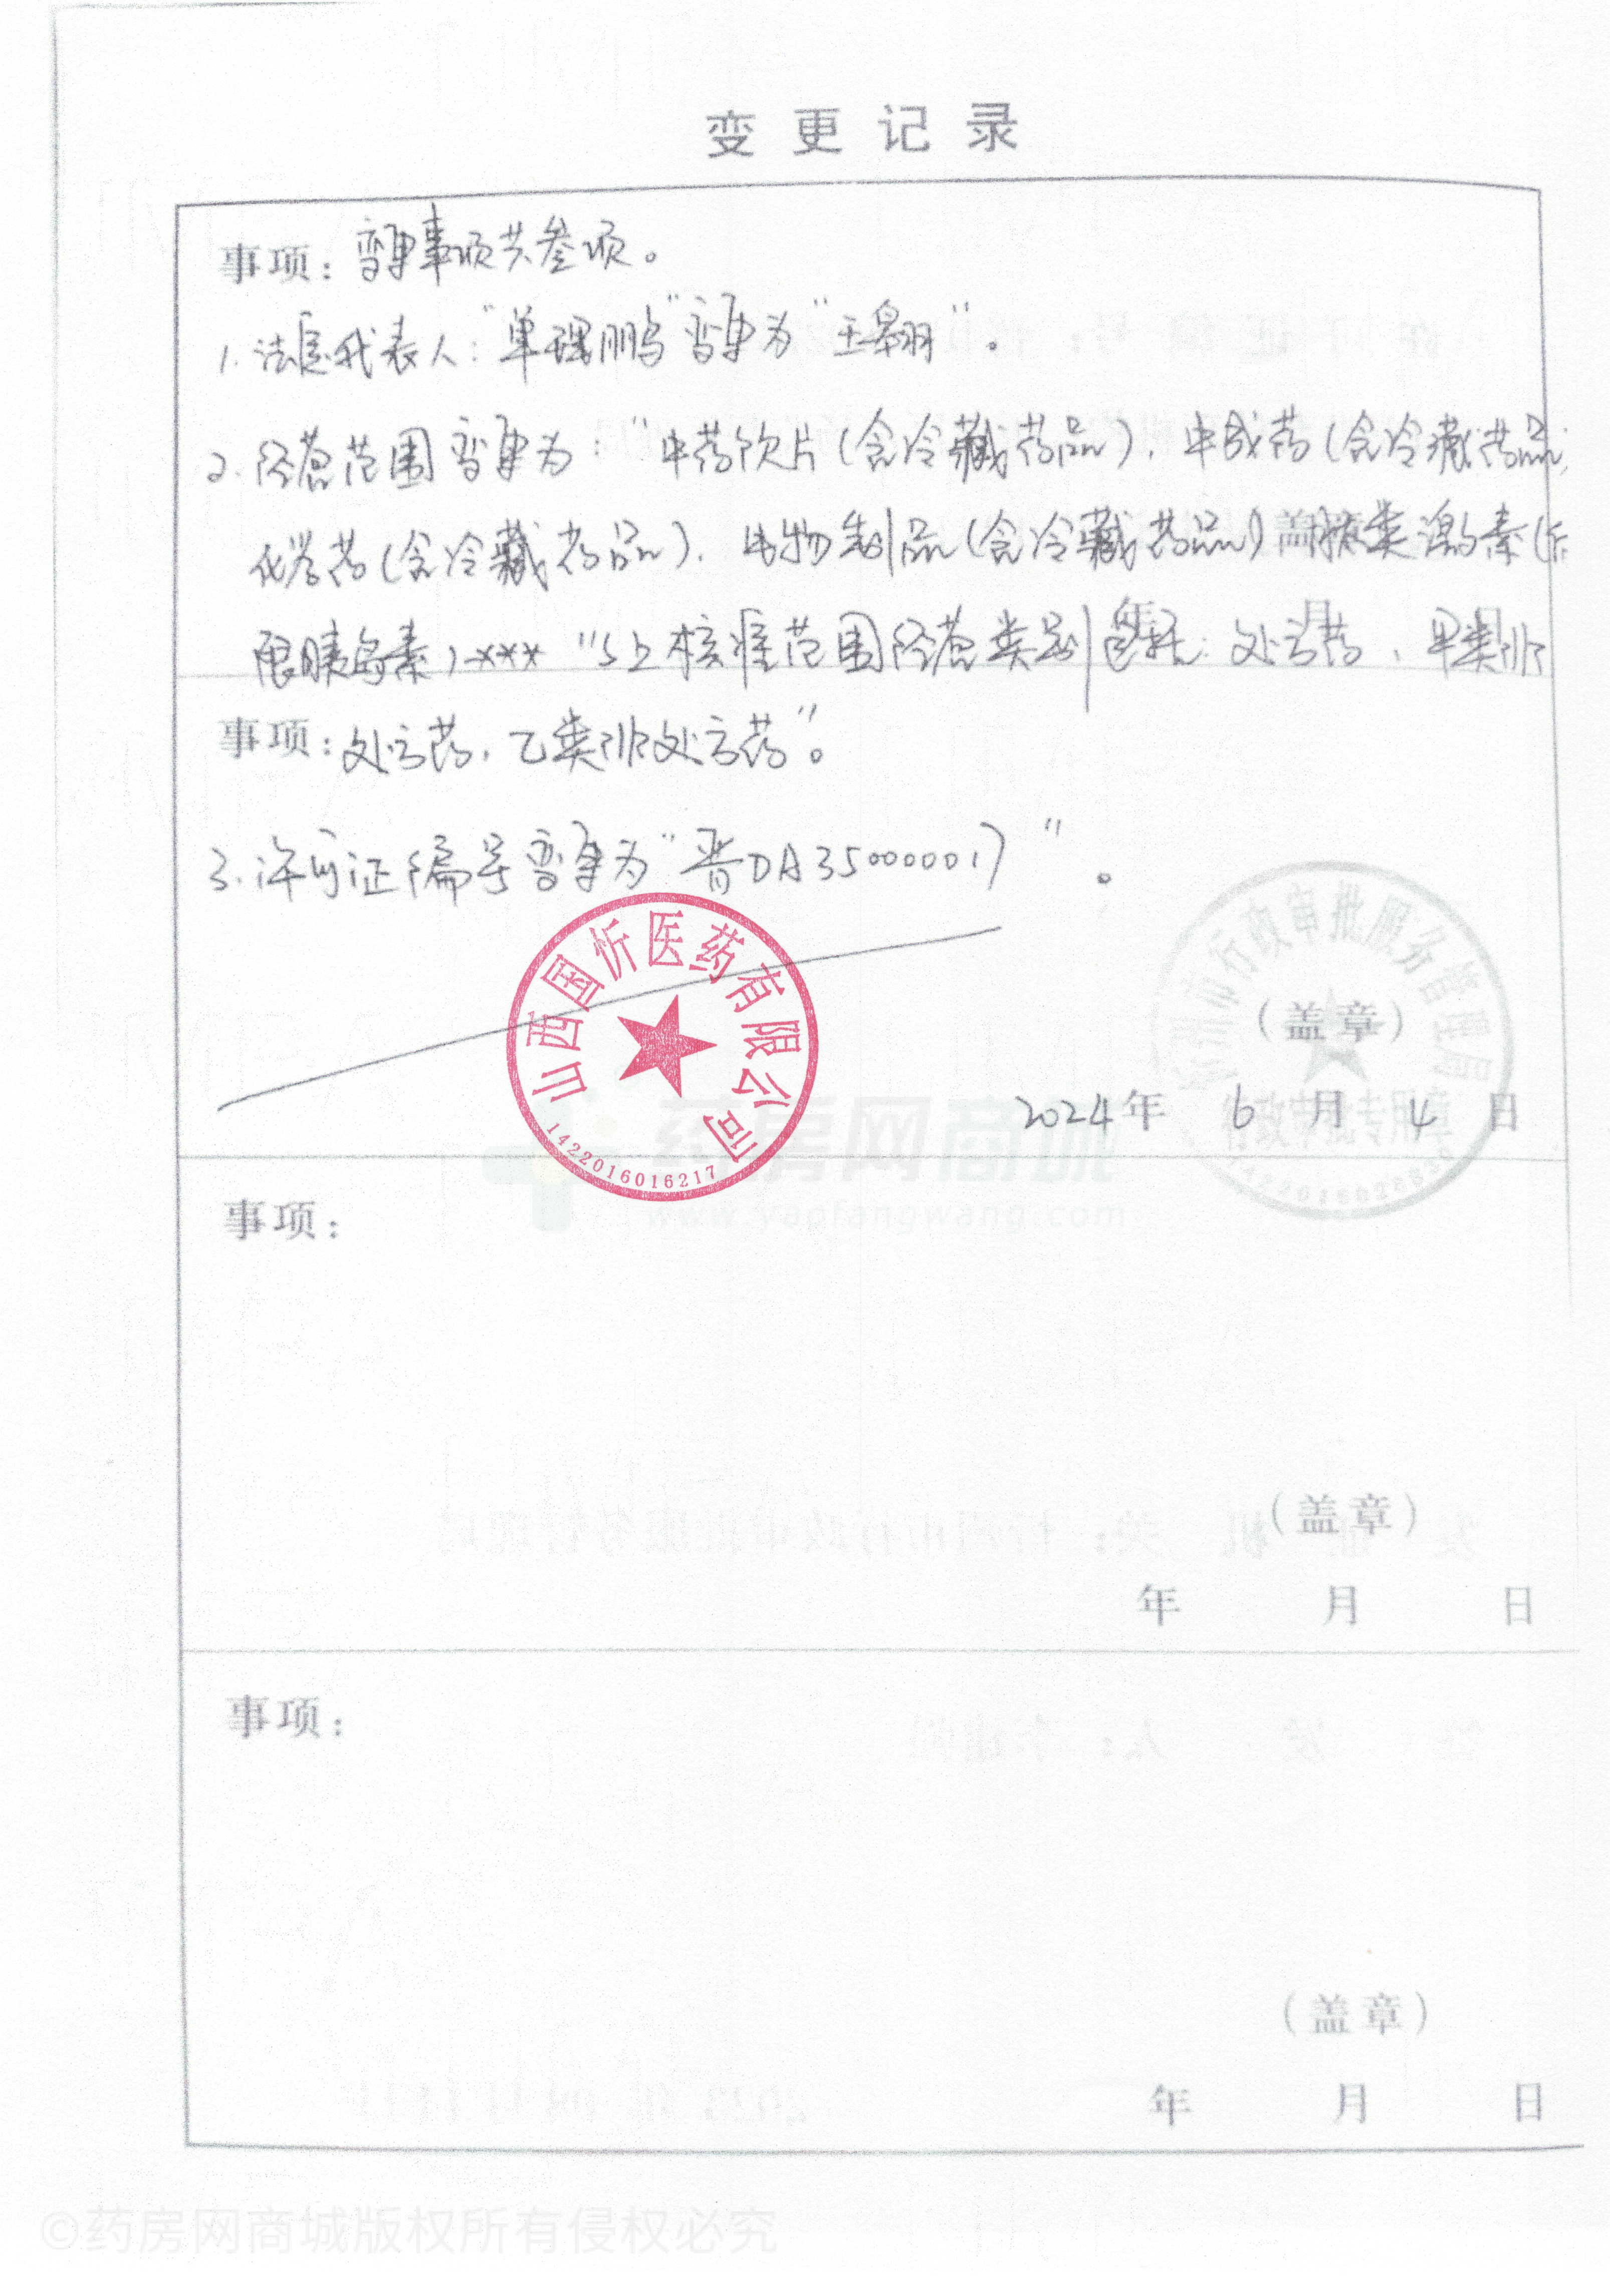 变更记录
事项：变更事项共叁项。
1.法定代表人："单理鹏"变更为"王翱羽"。
2.经营范围变更为："中药饮片(含冷藏药品)、中成药(含冷藏药品)
化学药(含冷藏药品)、生物制品(含冷藏药品) 肽类激素(
限胰岛素)***"以上核准范围经营类别包括:处方药、甲类非
事项：处方药、乙类非处方药"。
3.许可证编号变更为"晋DA35000001)"。
山西国忻医药有限公司
1422016016217
市行政审批服务管理局
(盖章)
行政审批专用章
2024年 6月 4日
药房网商城
www.yaofangwang.com
事项：
(盖章)
年 月 日
事项：
(盖章)
年 月 日
©药房网商城版权所有侵权必究